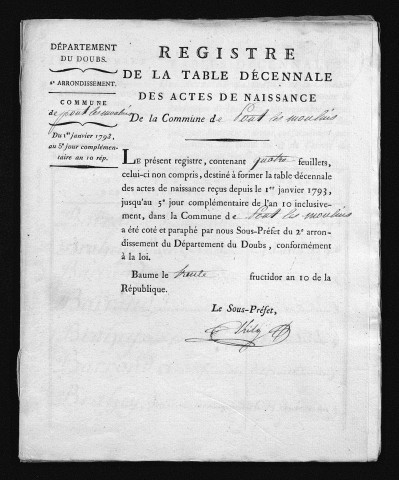 DÉPARTEMENT
DU DOUBS.
2e ARRONDISSEMENT.
COMMUNE
de pont les moulins
Du 1er janvier 1793,
au 5e jour complémen-
taire an 10 rép.
REGISTRE
DE LA TABLE DÉCENNALE
DES ACTES DE NAISSANCE
De la Commune de Pont les moulins
LE présent registre, contenant quatre feuillets,
celui-ci non compris, destiné à former la table décennale
des actes de naissance reçus depuis le 1er janvier 1793,
jusqu'au 5e jour complémentaire de l'an 10 inclusive-
ment, dans la Commune de Pont les moulins
a été coté et paraphé par nous Sous-Préfet du 2e arron-
dissement du Département du Doubs, conformément
à la loi.
Baume le trente fructidor an 10 de la
République.
Le Sous-Préfet,